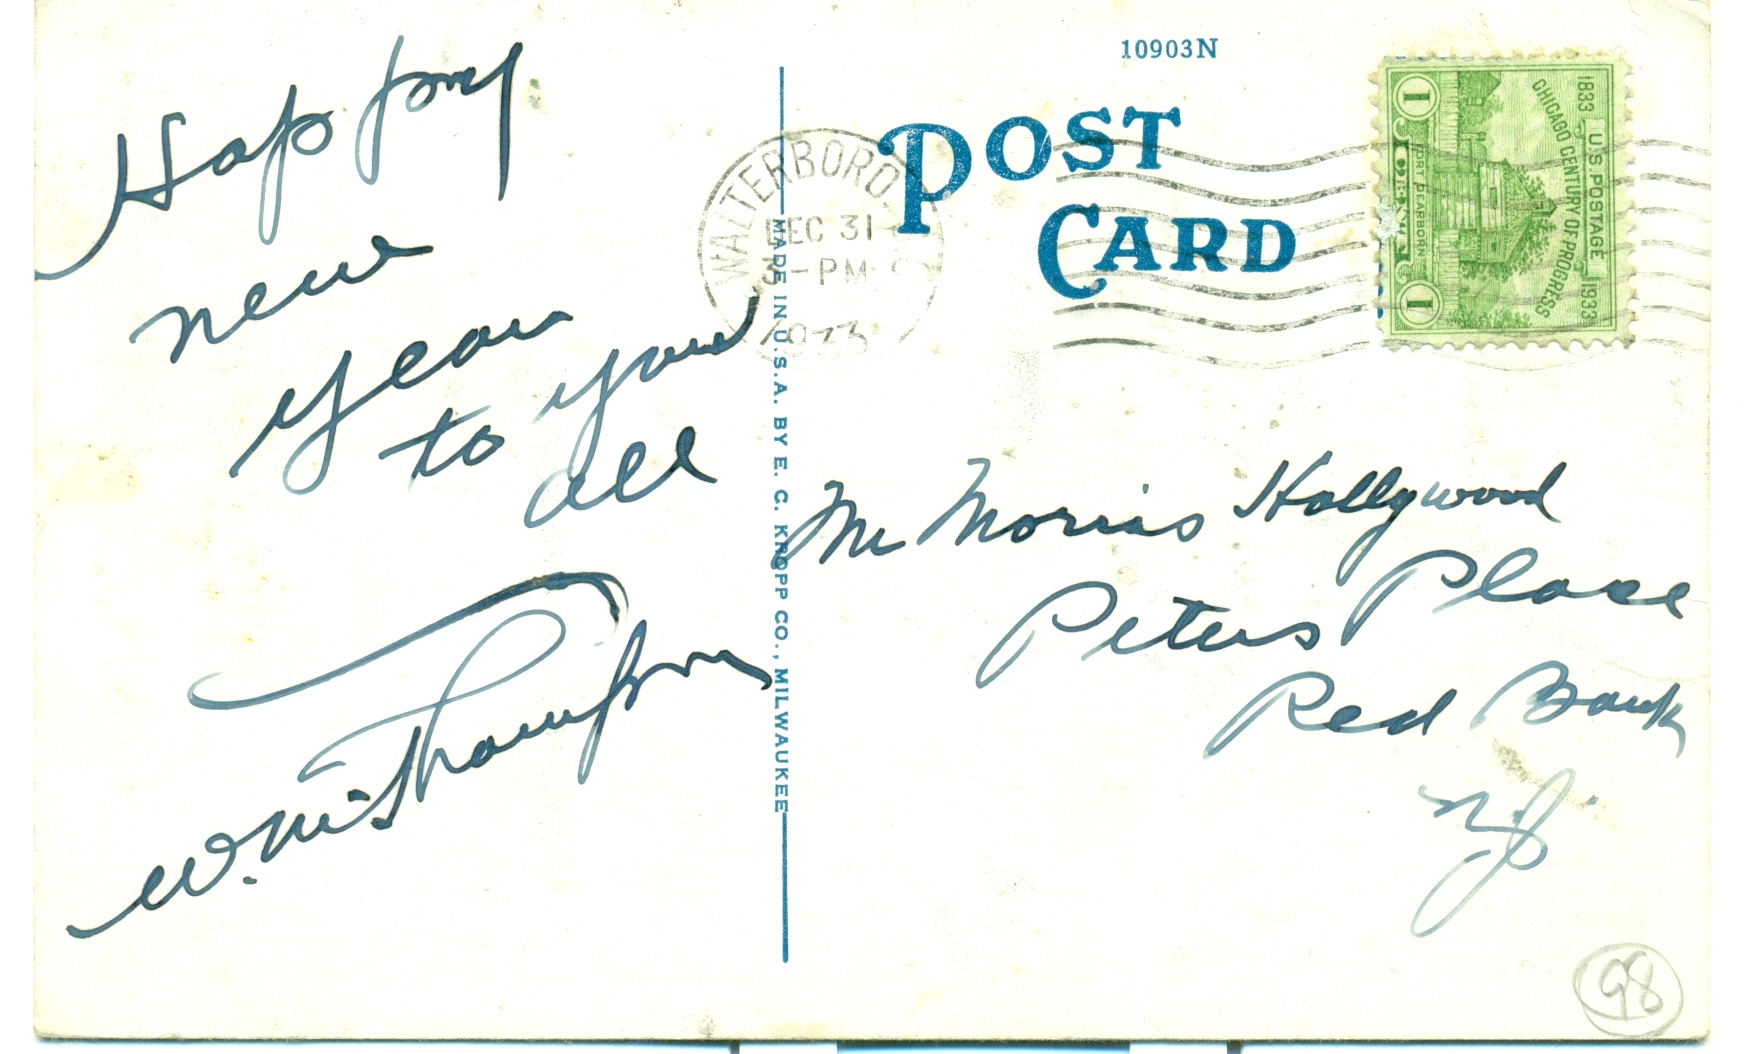 Happy
new
year
to you
all
W. M. Thompson
10903N
POST
CARD
WALTERBORO.
DEC 31
-PM
1933
MADE IN U.S.A. BY E. C. KROPP CO., MILWAUKEE
1833 U.S. POSTAGE 1933
CHICAGO CENTURY OF PROGRESS
FORT DEARBORN
1
1
Mr Morris Hollywood
Peters Place
Red Bank
N.J.
98